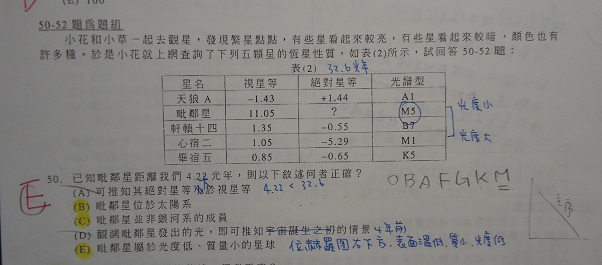 (E) 100
50-52 題為題組
小花和小草一起去觀星，發現繁星點點，有些星看起來較亮，有些星看起來較暗，顏色也有
許多種。於是小花就上網查詢了下列五顆星的恆星性質，如表(2)所示，試回答 50-52 題：
表(2) 32.6光年
星名 視星等 絕對星等 光譜型
天狼 A −1.43 +1.44 A1
毗鄰星 11.05 ? M5 光度小
軒轅十四 1.35 −0.55 B7
心宿二 1.05 −5.29 M1 光度大
畢宿五 0.85 −0.65 K5
50. 已知毗鄰星距離我們 4.22 光年，則以下敘述何者正確？
(A) 可推知其絕對星等 於視星等 4.22 < 32.6 OBAFGKM
E (B) 毗鄰星位於太陽系
(C) 毗鄰星並非銀河系的成員 主序
(D) 觀測毗鄰星發出的光，即可推知宇宙誕生之初的情景 4年前
(E) 毗鄰星屬於光度低、質量小的星球 位赫羅圖右下方，表面溫低，質小，光度低